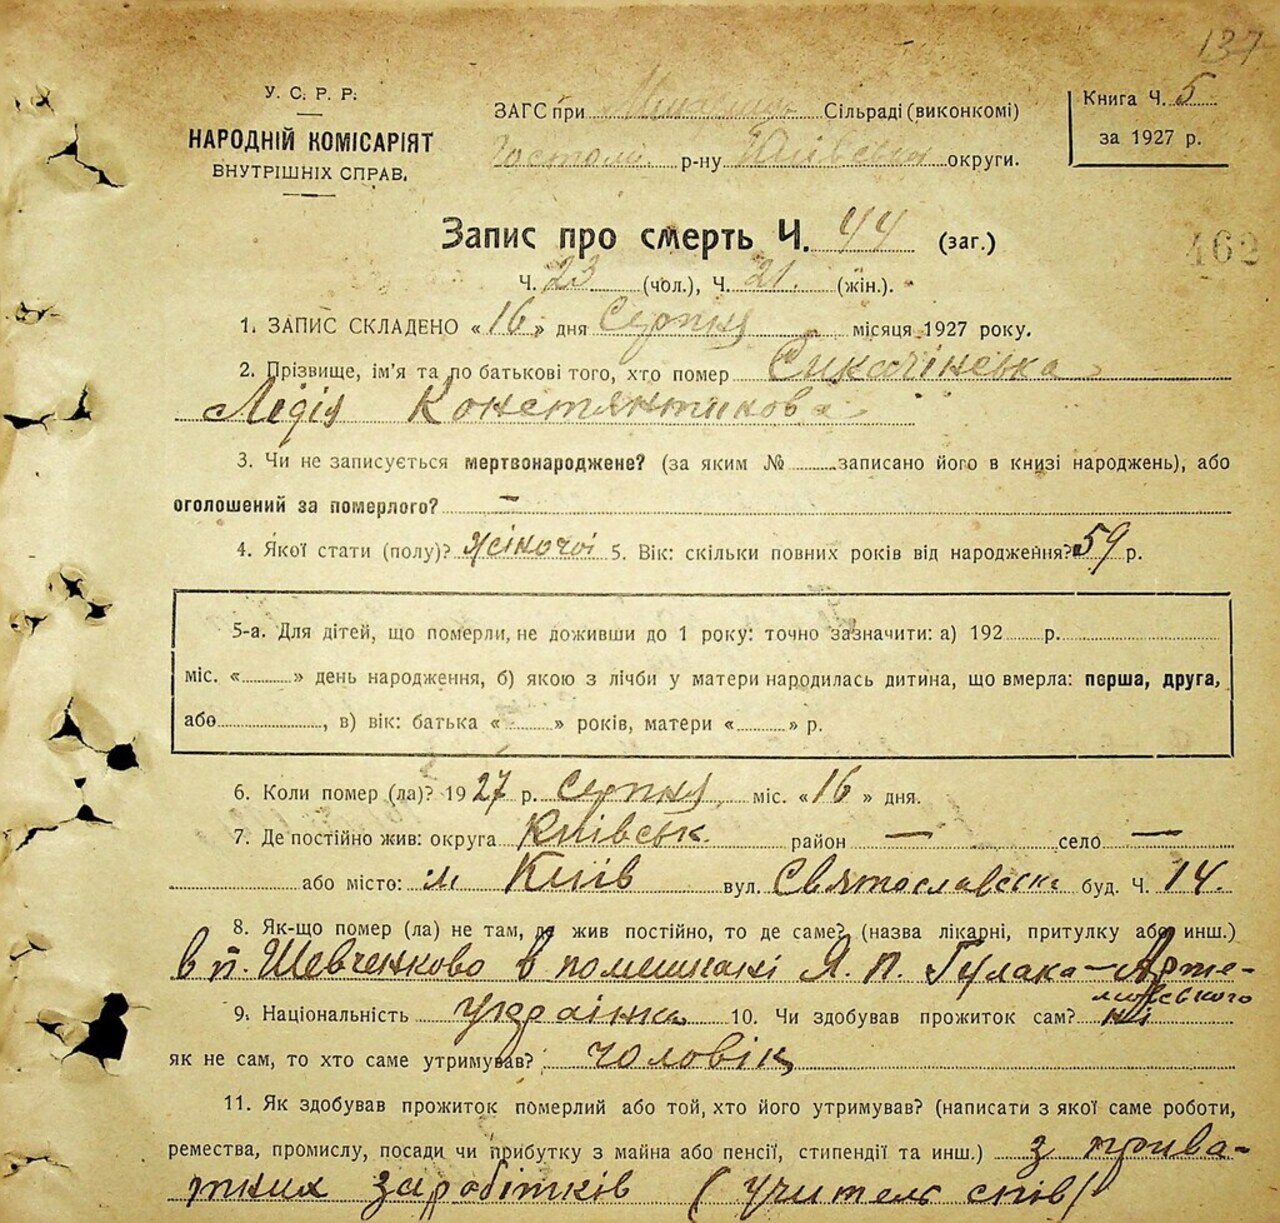 137
У. С. Р. Р.
НАРОДНІЙ КОМІСАРІЯТ
ВНУТРІШНІХ СПРАВ.
ЗАГС при Сільраді (виконкомі)
Гостомл. р-ну Київськ округи.
Книга Ч. 5
за 1927 р.
Запис про смерть Ч. 44 (заг.)
462
Ч. 23 (чол.), Ч. 21. (жін.).
1. ЗАПИС СКЛАДЕНО «16» дня Серпня місяця 1927 року.
2. Прізвище, ім'я та по батькові того, хто помер Сикачінська
Лідія Констянтинова
3. Чи не записується мертвонароджене? (за яким № записано його в книзі народжень), або
оголошений за померлого? —
4. Якої стати (полу)? жіночоі 5. Вік: скільки повних років від народження? 59 р.
5-а. Для дітей, що померли, не доживши до 1 року: точно зазначити: а) 192 р.
міс. « » день народження, б) якою з лічби у матери народилась дитина, що вмерла: перша, друга,
або , в) вік: батька « » років, матери « » р.
6. Коли помер (ла)? 1927 р. Серпня міс. «16» дня.
7. Де постійно жив: округа Київськ. район — село —
або місто: м Київ вул. Святославська буд. Ч. 14.
8. Як-що помер (ла) не там, де жив постійно, то де саме? (назва лікарні, притулку або инш.)
в п. Шевченково в помешкані Я. П. Гулака-Арте-
мовського
9. Національність украінка 10. Чи здобував прожиток сам? ні
як не сам, то хто саме утримував? чоловік
11. Як здобував прожиток померлий або той, хто його утримував? (написати з якої саме роботи,
ремества, промислу, посади чи прибутку з майна або пенсії, стипендії та инш.) з прива-
тних заробітків (учитель спів)